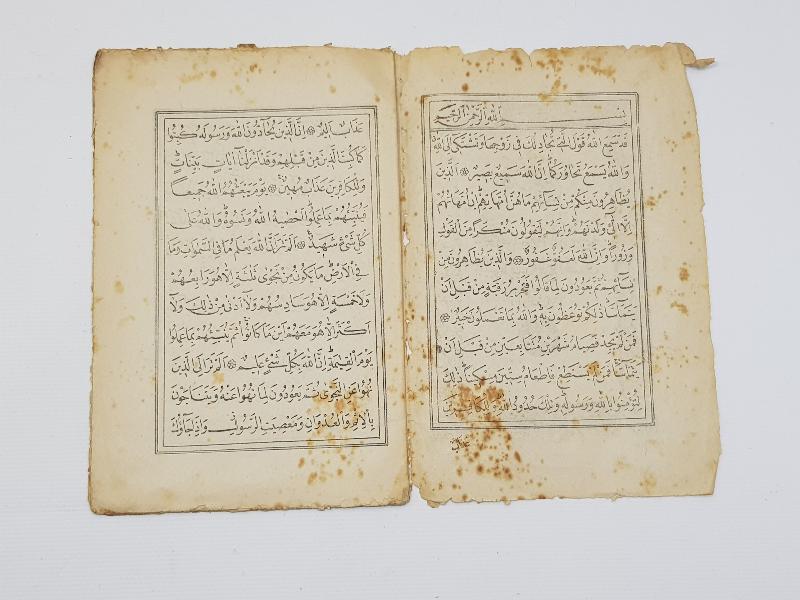 بسم الله الرحمن الرحيم
قَدْ سَمِعَ اللهُ قَوْلَ الَّتِي تُجَادِلُكَ فِي زَوْجِهَا وَتَشْتَكِي اِلَى اللهِ
وَاللهُ يَسْمَعُ تَحَاوُرَكُمَا اِنَّ اللهَ سَمِيعٌ بَصِيرٌ ۞ اَلَّذِينَ
يُظَاهِرُونَ مِنْكُمْ مِنْ نِسَائِهِمْ مَا هُنَّ اُمَّهَاتِهِمْ اِنْ اُمَّهَاتُهُمْ
اِلَّا الّٰۤئِي وَلَدْنَهُمْ وَاِنَّهُمْ لَيَقُولُونَ مُنْكَرًا مِنَ الْقَوْلِ
وَزُورًا وَاِنَّ اللهَ لَعَفُوٌّ غَفُورٌ ۞ وَالَّذِينَ يُظَاهِرُونَ مِنْ
نِسَائِهِمْ ثُمَّ يَعُودُونَ لِمَا قَالُوا فَتَحْرِيرُ رَقَبَةٍ مِنْ قَبْلِ اَنْ
يَتَمَاسَّا ذٰلِكُمْ تُوعَظُونَ بِهِ وَاللهُ بِمَا تَعْمَلُونَ خَبِيرٌ ۞
فَمَنْ لَمْ يَجِدْ فَصِيَامُ شَهْرَيْنِ مُتَتَابِعَيْنِ مِنْ قَبْلِ اَنْ
يَتَمَاسَّا فَمَنْ لَمْ يَسْتَطِعْ فَاِطْعَامُ سِتِّينَ مِسْكِينًا ذٰلِكَ
لِتُؤْمِنُوا بِاللهِ وَرَسُولِهِ وَتِلْكَ حُدُودُ اللهِ وَلِلْكَافِرِينَ
عذاب
عَذَابٌ اَلِيمٌ ۞ اِنَّ الَّذِينَ يُحَادُّونَ اللهَ وَرَسُولَهُ كُبِتُوا
كَمَا كُبِتَ الَّذِينَ مِنْ قَبْلِهِمْ وَقَدْ اَنْزَلْنَا اٰيَاتٍ بَيِّنَاتٍ
وَلِلْكَافِرِينَ عَذَابٌ مُهِينٌ ۞ يَوْمَ يَبْعَثُهُمُ اللهُ جَمِيعًا
فَيُنَبِّئُهُمْ بِمَا عَمِلُوا اَحْصٰيهُ اللهُ وَنَسُوهُ وَاللهُ عَلٰى
كُلِّ شَيْءٍ شَهِيدٌ ۞ اَلَمْ تَرَ اَنَّ اللهَ يَعْلَمُ مَا فِي السَّمٰوَاتِ وَمَا
فِي الْاَرْضِ مَا يَكُونُ مِنْ نَجْوٰى ثَلٰثَةٍ اِلَّا هُوَ رَابِعُهُمْ
وَلَا خَمْسَةٍ اِلَّا هُوَ سَادِسُهُمْ وَلَا اَدْنٰى مِنْ ذٰلِكَ وَلَا
اَكْثَرَ اِلَّا هُوَ مَعَهُمْ اَيْنَ مَا كَانُوا ثُمَّ يُنَبِّئُهُمْ بِمَا عَمِلُوا
يَوْمَ الْقِيٰمَةِ اِنَّ اللهَ بِكُلِّ شَيْءٍ عَلِيمٌ ۞ اَلَمْ تَرَ اِلَى الَّذِينَ
نُهُوا عَنِ النَّجْوٰى ثُمَّ يَعُودُونَ لِمَا نُهُوا عَنْهُ وَيَتَنَاجَوْنَ
بِالْاِثْمِ وَالْعُدْوَانِ وَمَعْصِيَتِ الرَّسُولِ وَاِذَا جَاؤُكَ